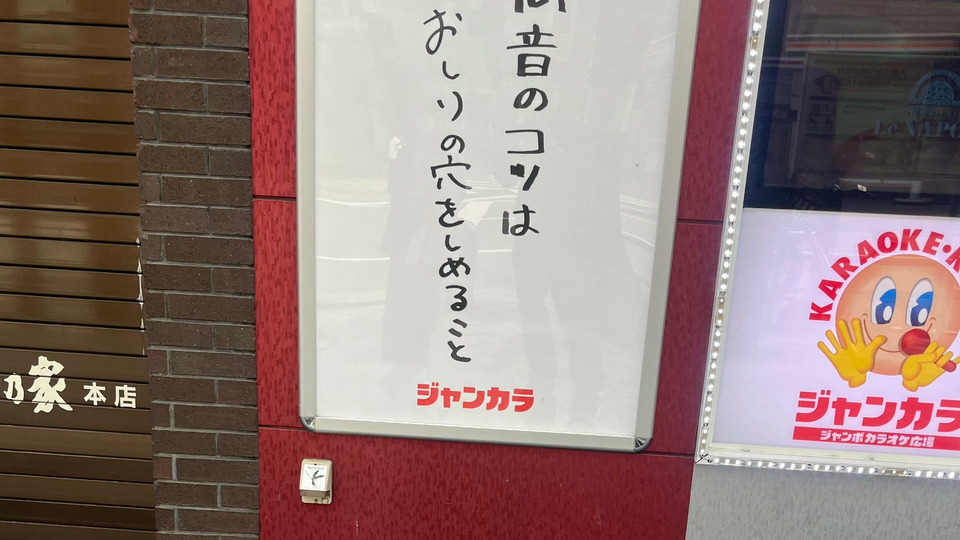 高音のコツは
おしりの穴をしめること
ジャンカラ
乃家 本店
KARAOKE・
ジャンカラ
ジャンボカラオケ広場